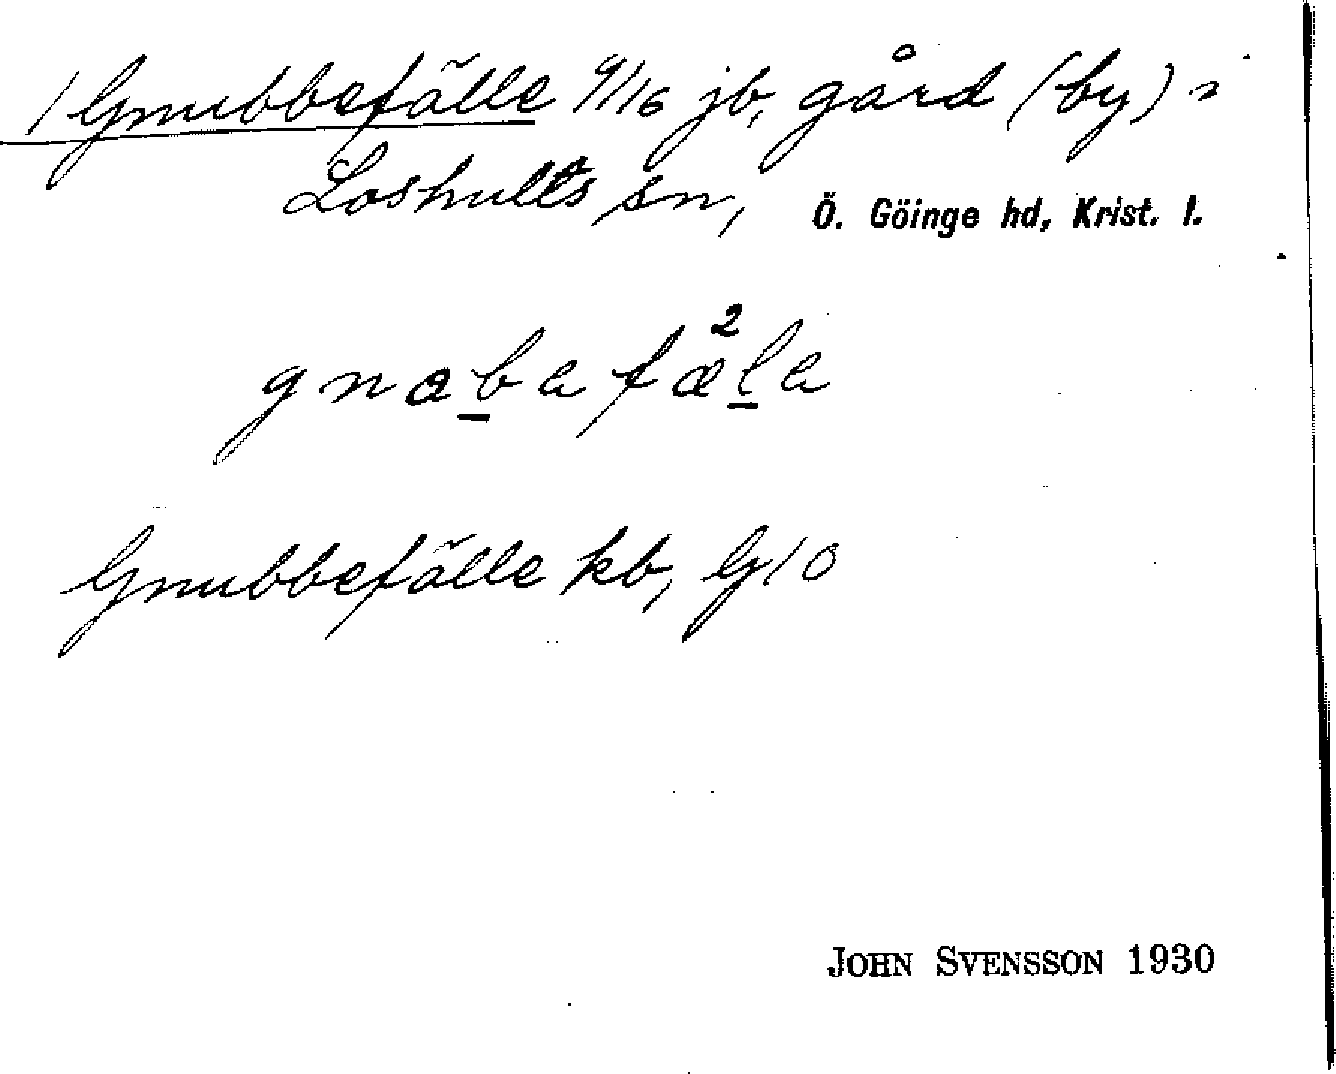 / Gnubbefälle 9/16 jb, gård (by) i
Loshults sn, Ö. Göinge hd, Krist. l.
gnabafä²la
Gnubbefälle kb, G10
JOHN SVENSSON 1930